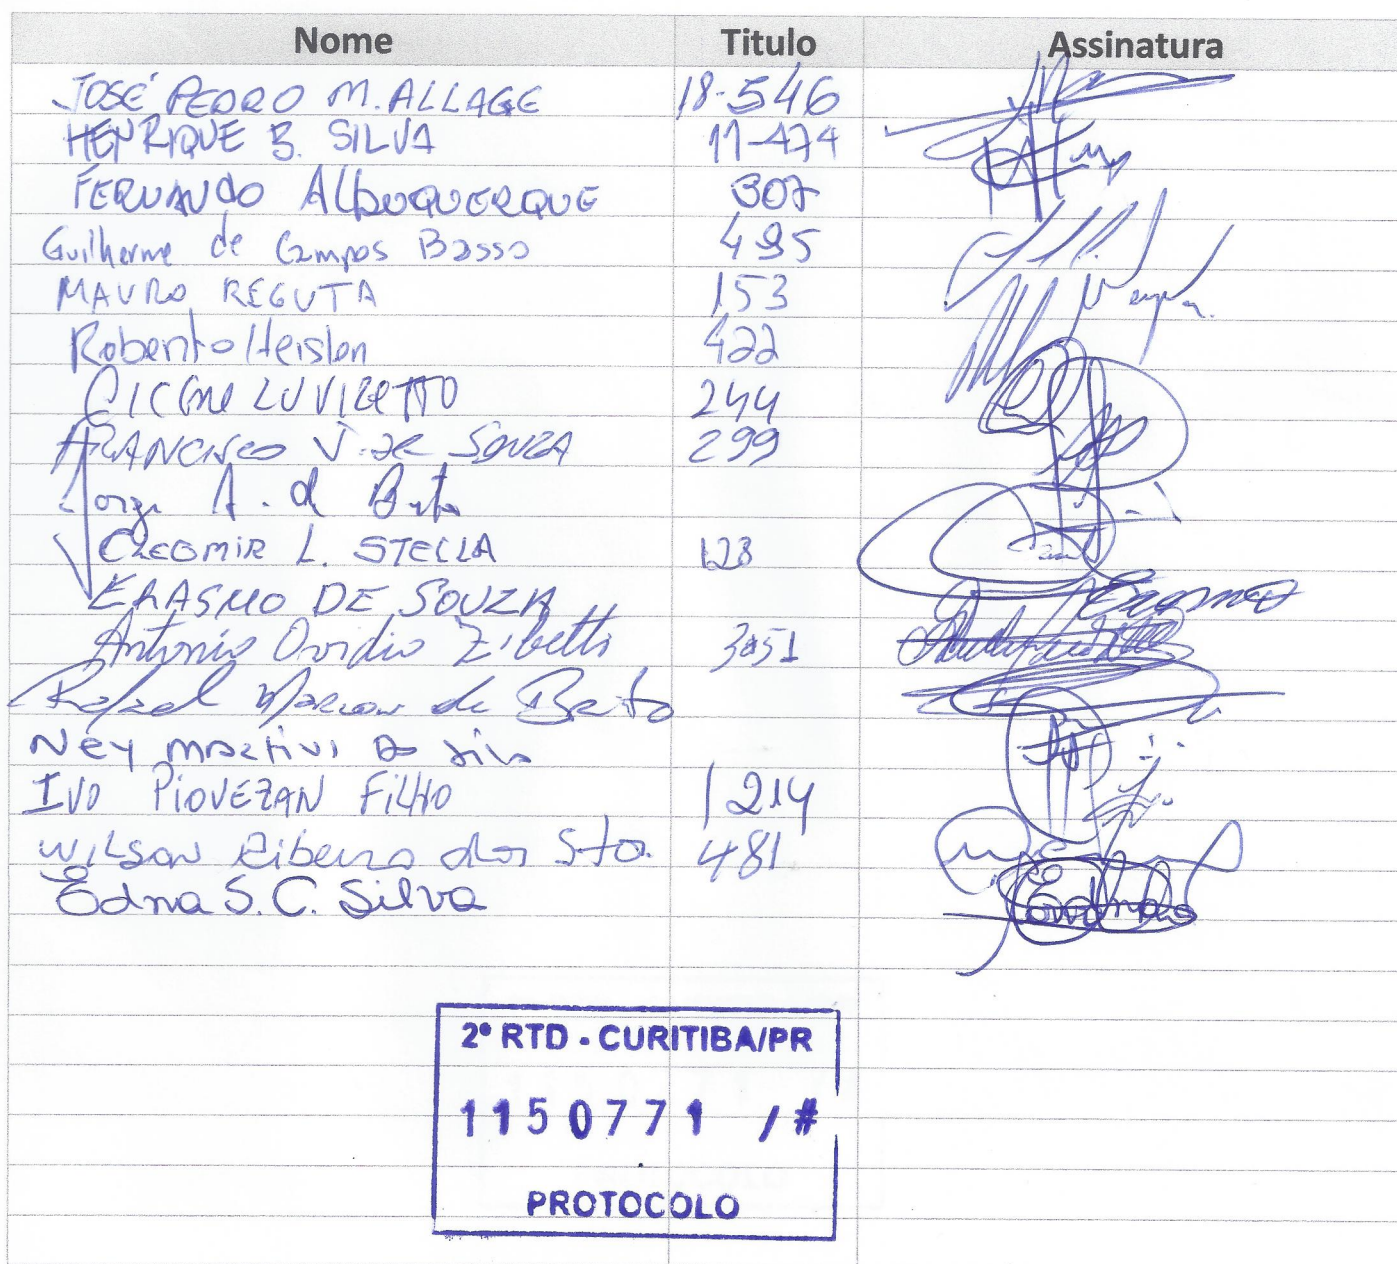 Nome Titulo Assinatura
JOSÉ PEDRO M. ALLAGE 18-546
HENRIQUE B. SILVA 11-474
FERNANDO ALBUQUERQUE 307
Guilherme de Campos Basso 495
MAURO REGUTA 153
Roberto Heislen 422
LUVIZOTTO 244
FRANCISCO V. DE SOUZA 299
Jorge A. d
CLEOMIR L. STELLA 123
ERASMO DE SOUZA Erasmo
Antonio Ovidio Zibetti 3051
Rafael Marcon de
Ney martins da silva
IVO PIOVEZAN FILHO 1214
WILSON Ribeiro dos Sto. 481
Edna S. C. Silva Edna
2º RTD - CURITIBA/PR
1150771 /#
PROTOCOLO